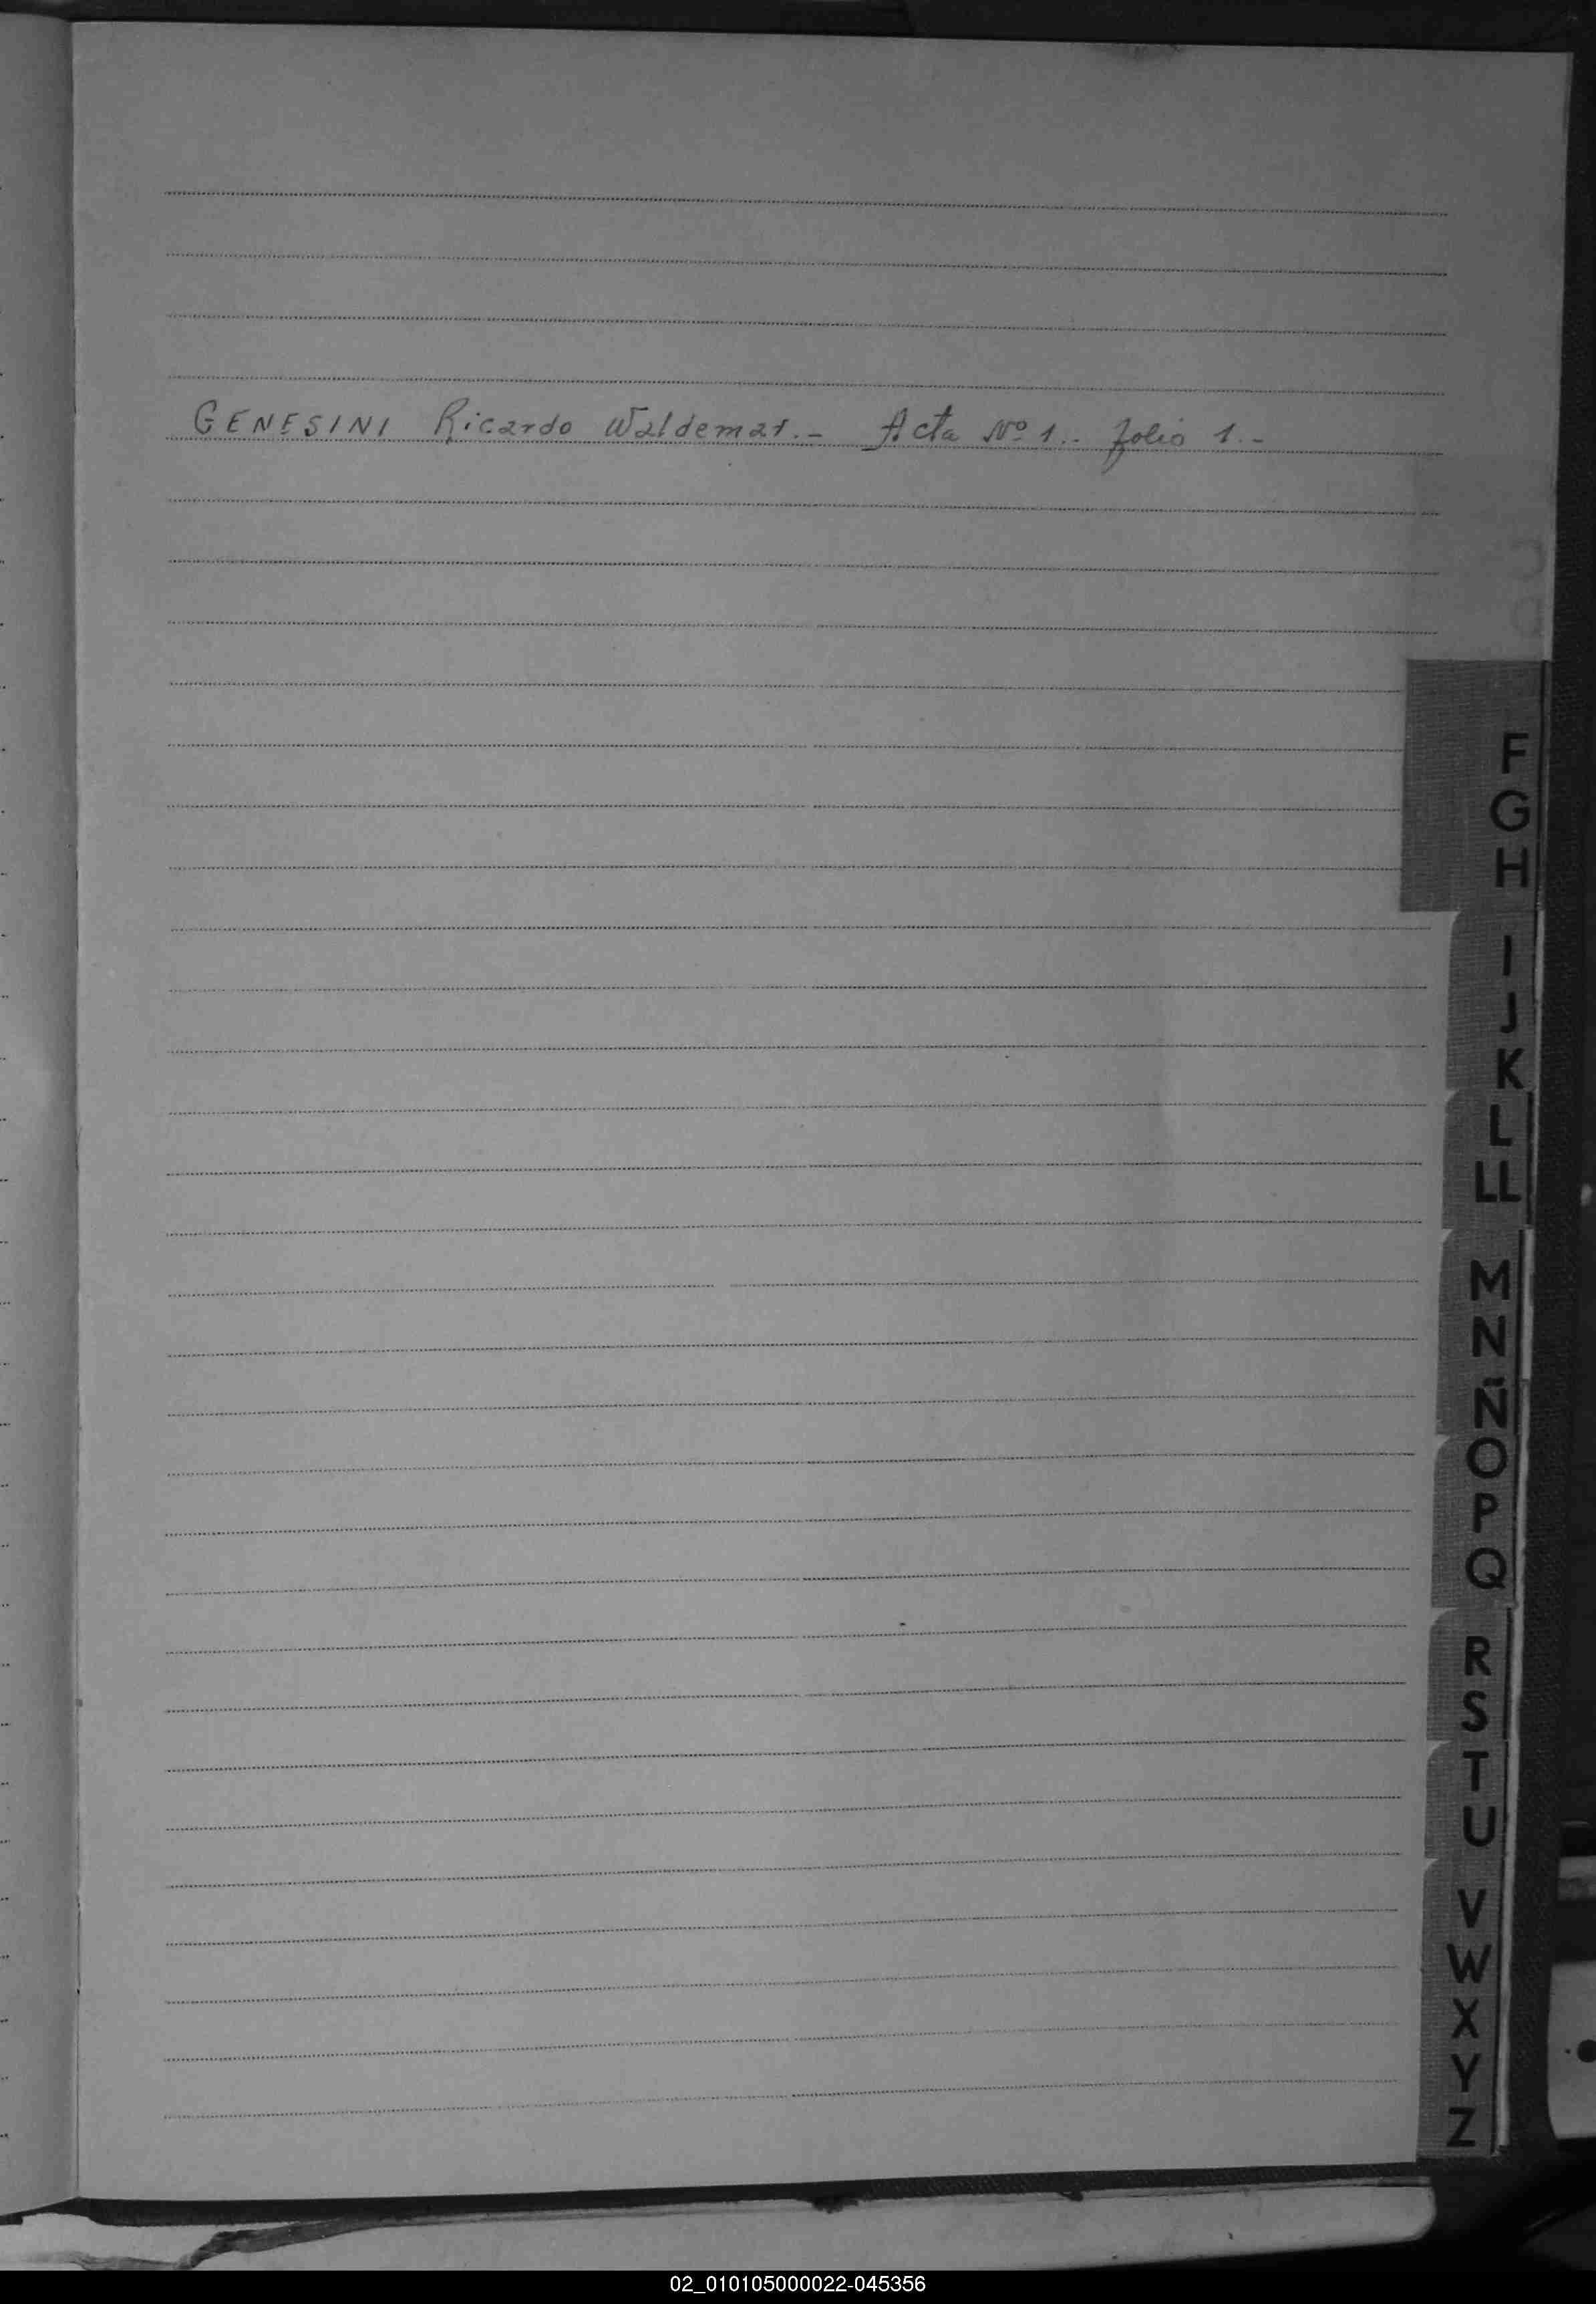 GENESINI Ricardo Waldemar.- Acta Nº 1.. folio 1.-
F
G
H
I
J
K
L
LL
M
N
Ñ
O
P
Q
R
S
T
U
V
W
X
Y
Z
02_010105000022-045356